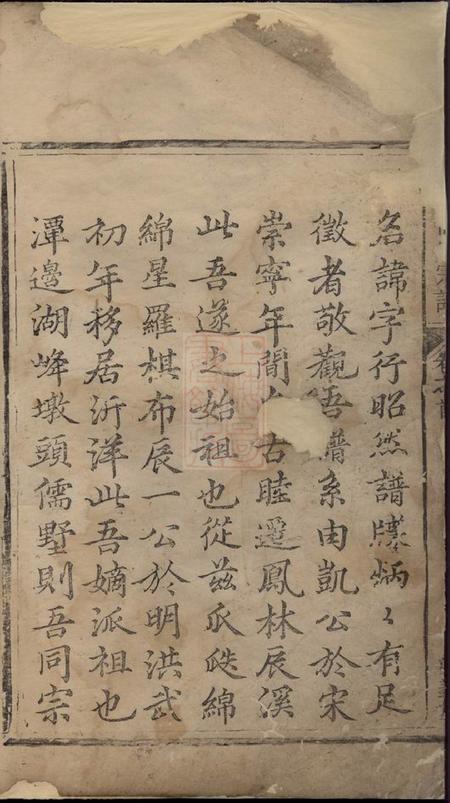 名諱字行昭然譜牒炳〻有足
徵者敬觀吾譜系由凱公於宋
崇寧年間古睦遷鳳林辰溪
此吾遂之始祖也從兹瓜瓞綿
綿星羅棋布辰一公於明洪武
初年移居沂洋此吾嫡派祖也
潭邊湖峰墩頭儒墅則吾同宗